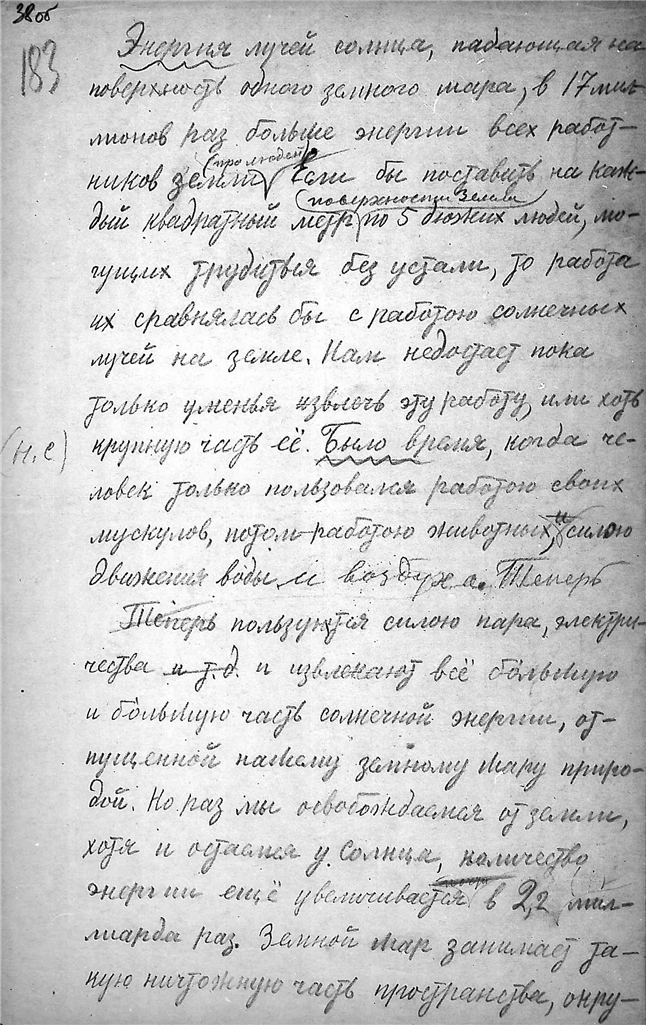 38 об
183
Энергия лучей солнца, падающая на
поверхность одного земного шара, в 17 мил-
лионов раз больше энергии всех работ-
(про людей)
ников земли. Если бы поставить на каж-
(поверхности Земли
дый квадратный метр по 5 дюжих людей, мо-
гущих трудиться без устали, то работа
их сравнялась бы с работою солнечных
лучей на земле. Нам недостает пока
только уменья извлечь эту работу, или хоть
(н.с) крупную часть её. Было время, когда че-
ловек только пользовался работою своих
мускулов, потом-работою животных, и силою
движения воды и воздуха. Теперь
Теперь пользуются силою пара, электри-
чества и т.д. и извлекают всё бо́льшую
и бо́льшую часть солнечной энергии, от-
пущенной нашему земному шару приро-
дой. Но раз мы освобождаемся от земли,
хотя и остаемся у солнца, количество
энергии ещё увеличивается в 2,2 мил-
лиарда раз. Земной шар занимает та-
кую ничтожную часть пространства, окру-